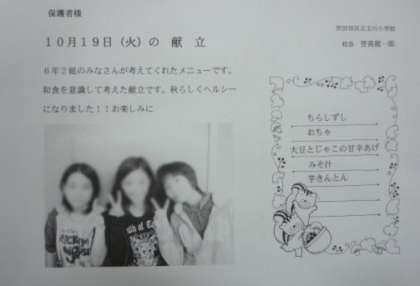 保護者様
10月19日（火）の 献 立
6年2組のみなさんが考えてくれたメニューです。
和食を意識して考えた献立です。秋らしくヘルシー
になりました！！お楽しみに
ちらしずし
おちゃ
大豆とじゃこの甘辛あげ
みそ汁
芋きんとん